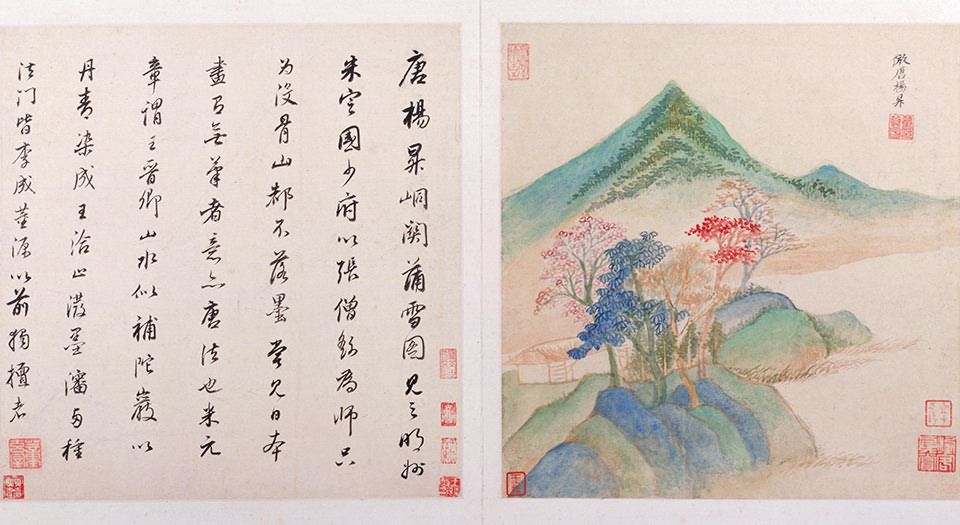 倣唐楊昇
唐楊昇峒関蒲雪圖見之明州
朱定國少府以張僧繇為師只
為沒骨山都不落墨嘗見日本
畫有無筆者意亦唐法也米元
章謂王晉卿山水似補陀巖以
丹青染成王洽止潑墨瀋与種
法門皆李成董源以前獨擅者